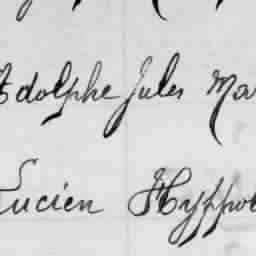 Adolphe Jules Ma
Lucien Hyppol